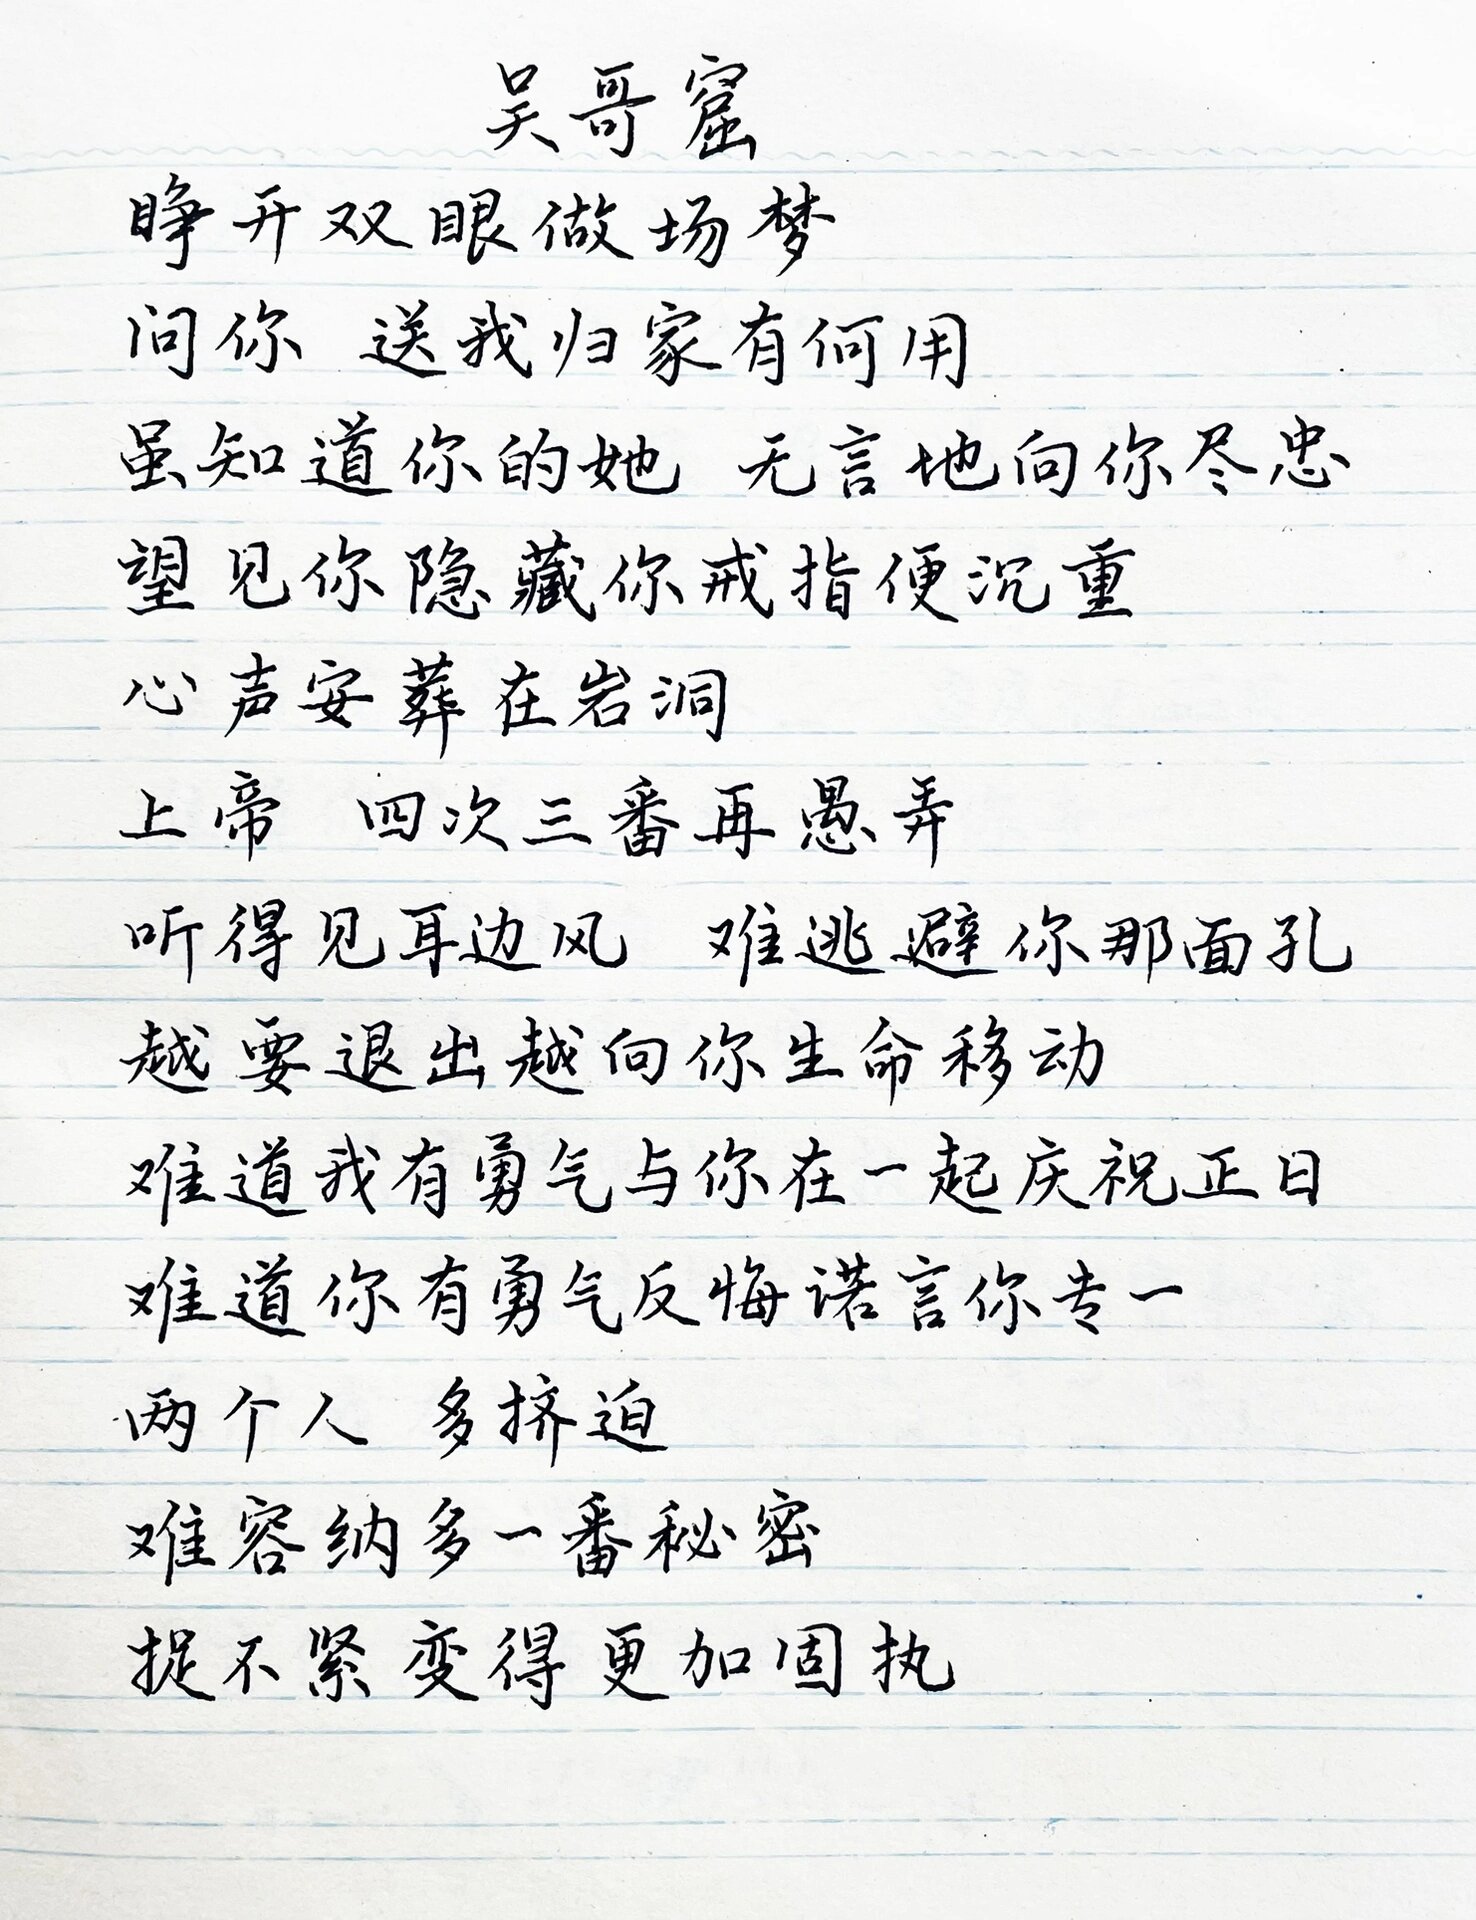 吴哥窟
睁开双眼做场梦
问你 送我归家有何用
虽知道你的她 无言地向你尽忠
望见你隐藏你戒指便沉重
心声安葬在岩洞
上帝 四次三番再愚弄
听得见耳边风 难逃避你那面孔
越要退出越向你生命移动
难道我有勇气与你在一起庆祝正日
难道你有勇气反悔诺言你专一
两个人 多挤迫
难容纳多一番秘密
捉不紧变得更加固执